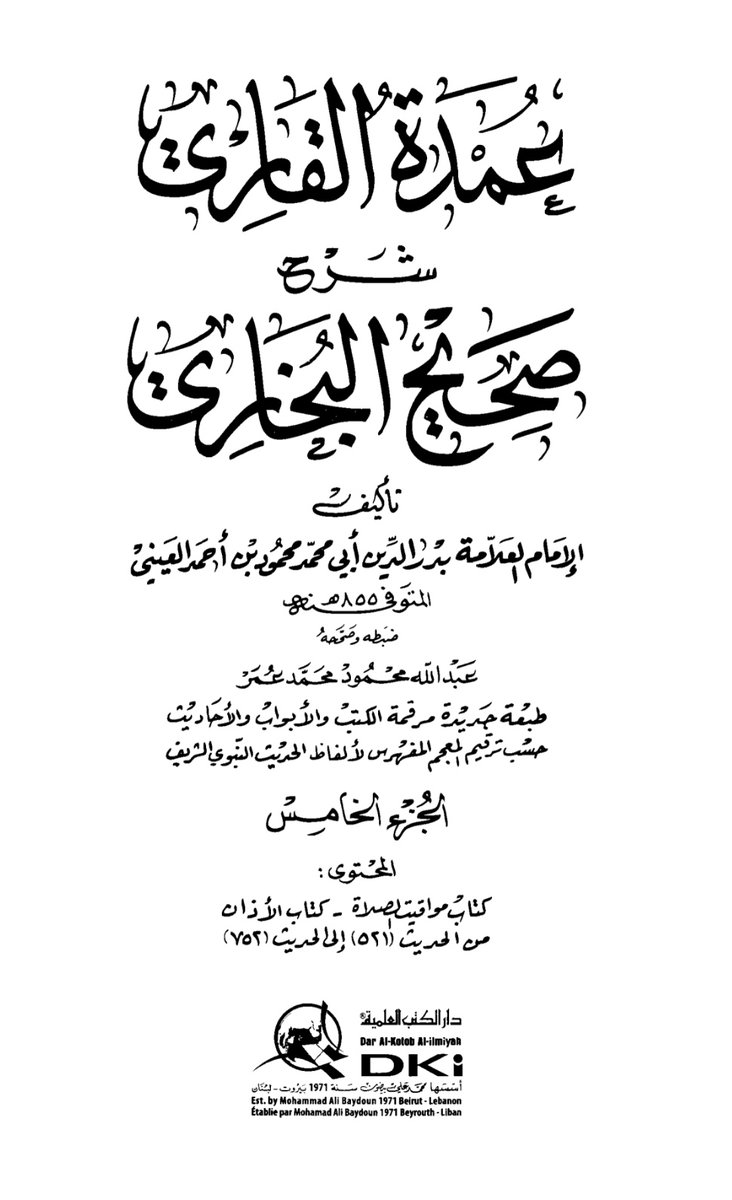 عُمْدَةُ القَارِيْ
شَرْح
صَحِيْح البُخَارِيْ
تأليفْ
الإمَام العَلاّمة بدر الدِّين أبي محمّد محمُود بْن أحمَد العَينيْ
المتوَفىْ سَنة ٨٥٥هـ
ضبَطه وصَحّحَهُ
عَبْد الله محمُود محمَّد عُمَرْ
طبعْة جَديْدة مرقمة الكتبْ والأبوابْ والأحَاديْث
حسْب ترقيم المعجم المفهرس لألفاظ الحديْث النبّوي الشريف
الجُزءْ الخامِسْ
المحْتوى:
كتابْ مواقيت الصلاة - كتابْ الأذان
من الحديْث (٥٢١) إلى الحديْث (٧٥٢)
دار الكتب العلمية®
Dar Al-Kotob Al-ilmiyah
DKi
أسسها محمد علي بيضون سنة 1971 بيروت - لبنان
Est. by Mohammad Ali Baydoun 1971 Beirut - Lebanon
Établie par Mohamad Ali Baydoun 1971 Beyrouth - Liban